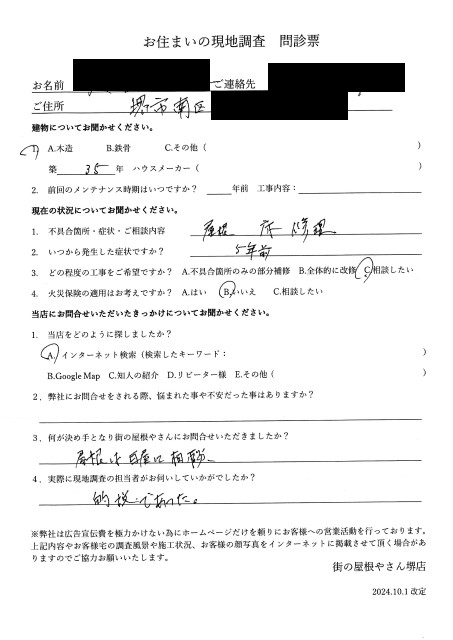 お住まいの現地調査 問診票
お名前 ご連絡先
ご住所 堺市南区
建物についてお聞かせください。
1. A.木造 B.鉄骨 C.その他（ ）
築 35 年 ハウスメーカー（ ）
2. 前回のメンテナンス時期はいつですか？ 年前 工事内容：
現在の状況についてお聞かせください。
1. 不具合箇所・症状・ご相談内容 屋根 修理
2. いつから発生した症状ですか？ 5年前
3. どの程度の工事をご希望ですか？ A.不具合箇所のみの部分補修 B.全体的に改修 C.相談したい
4. 火災保険の適用はお考えですか？ A.はい B.いいえ C.相談したい
当店にお問合せいただいたきっかけについてお聞かせください。
1. 当店をどのように探しましたか？
A.インターネット検索（検索したキーワード： ）
B.Google Map C.知人の紹介 D.リピーター様 E.その他（ ）
2．弊社にお問合せをされる際、悩まれた事や不安だった事はありますか？
3．何が決め手となり街の屋根やさんにお問合せいただきましたか？
屋根は 屋に相談
4．実際に現地調査の担当者がお伺いしていかがでしたか？
的 であった。
※弊社は広告宣伝費を極力かけない為にホームページだけを頼りにお客様への営業活動を行っております。
上記内容やお客様宅の調査風景や施工状況、お客様の顔写真をインターネットに掲載させて頂く場合があ
りますのでご協力お願いいたします。
街の屋根やさん堺店
2024.10.1 改定